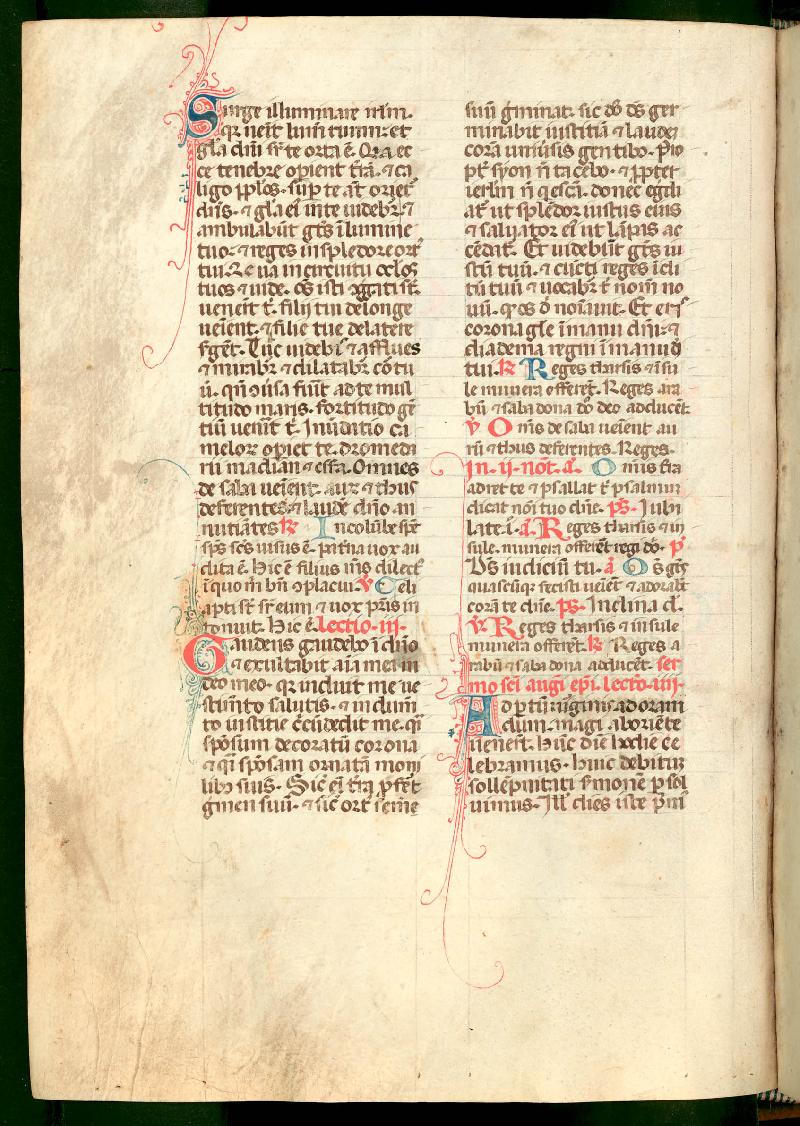 Surge illuminare irl̄m.
qr̄ ueīt lum̄ tuum: et
gl̄a dn̄i sr̄ te orta ē. Q̄a ec
ce tenebre opient t̄ra. ⁊ ca
ligo pp̄los. sup̄ te aūt oriet᷑
dn̄s. ⁊ gl̄a eī in te uidebr̄. ⁊
ambulabūt gēs ī lumine
tuo. ⁊ reges in splēdore ort᷑
tui. le ua in circuitu oclos
tuos ⁊ uide. oēs isti ɔgͣgati st̄
uenerīt t̄. filij tui de longe
ueīent. ⁊ filie tue de latere
sᷣgēt. Tūc uideb̄ ⁊ afflues
⁊ mirabr̄ ⁊ dilatabr̄ cor tu
ū. qn̄ ɔuīsa fūit ad te mul
titudo maris. fortitudo gē
tiū uenīt t̄. Inūdatio ca
meloꝝ opiet te. dromeda
rii madian ⁊ effa. Omnes
de saba ueīent. auꝝ ⁊ thus
deferentes. ⁊ laudē dn̄o an
nūtiātes ℟ In colūbe spē
sp̄s sc̄s uisus ē. paterna uox au
dita ē. hic ē filius m̄s dilect᷑
ī quo m̄ bn̄ ɔplacui. ℣ Celi
apti st̄ sr̄ eum ⁊ uox pr̄is in
tonuit. hic ē. lectio. iii.
Gaudens gaudebo ī dn̄o
⁊ exultabit aīa mea in
deo meo. qr̄ induit me ue
stim̄to salutis. ⁊ indum̄
to iustitie c̄cūdedit me. qͣi
spōsum decoratū corona
⁊ qͣi spōsam ornatā moni
libꝫ suis. Sic̄ eī t̄ra ꝓfert
gm̄en suū. ⁊ sic̄ ort᷑ semē
suū gm̄inat. sic dn̄s ds̄ ger
minabit iustitiā ⁊ laudē
corā uniūsis gentibꝫ. Pro
pt̄ syon n̄ tacebo. ⁊ ꝓpter
ierl̄m n̄ qͥescā. donec egdi
at᷑ ut splēdor iustus eius
⁊ saluator eī ut lāpas ac
cēdat᷑. Et uidebūt gēs iu
stū tuū. ⁊ cūcti reges īcli
tū tuū ⁊ uocabr̄ t̄ nom̄ no
uū. qd̓ os dn̄i noīauit. Et eris
corona gl̄e ī manu dn̄i. ⁊
diadema regni ī manu dī
tui. ℟ Reges tharsis ⁊ īsu
le munera offerēt. Reges ara
bū ⁊ saba dona dn̄o deo adducēt.
℣ Om̄s de saba ueīent au
rū ⁊ thus deferentes. Reges.
In. ij. not. a. Omīs t̄ra
adoret te ⁊ psallat t̄ psalmū
dicat noī tuo dn̄e. ps. Iubi
late. i. a. Reges tharsis ⁊ in
sule. munera offerēt regi dn̄o. p̄
Ds̄ iudiciū tu. a. Oēs gēs
quascūqꝫ fecisti ueīent ⁊ adorabt̄
corā te dn̄e. ps. Inclina d̄.
℣ Reges tharsis ⁊ insule
munera offerēt. ℟ Reges a
rabū ⁊ saba dona adducēt. ser
mo sc̄i augͥ ep̄i. lectio. iiii.
Ad ptū uirginis adoran
dum. magi ab oriēte
uenerūt. hūc diē hodie ce
lebramus. huic debitū
sollēpnitati s̄monē psol
uimus. Ill̄ dies iste pͥmꝰ